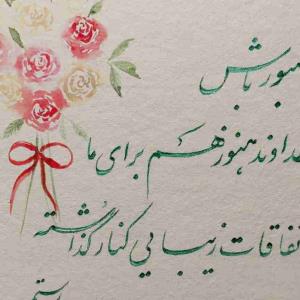 صبور باش
خداوند هنوز هم برای ما
اتفاقات زیبایی کنار گذاشته
است